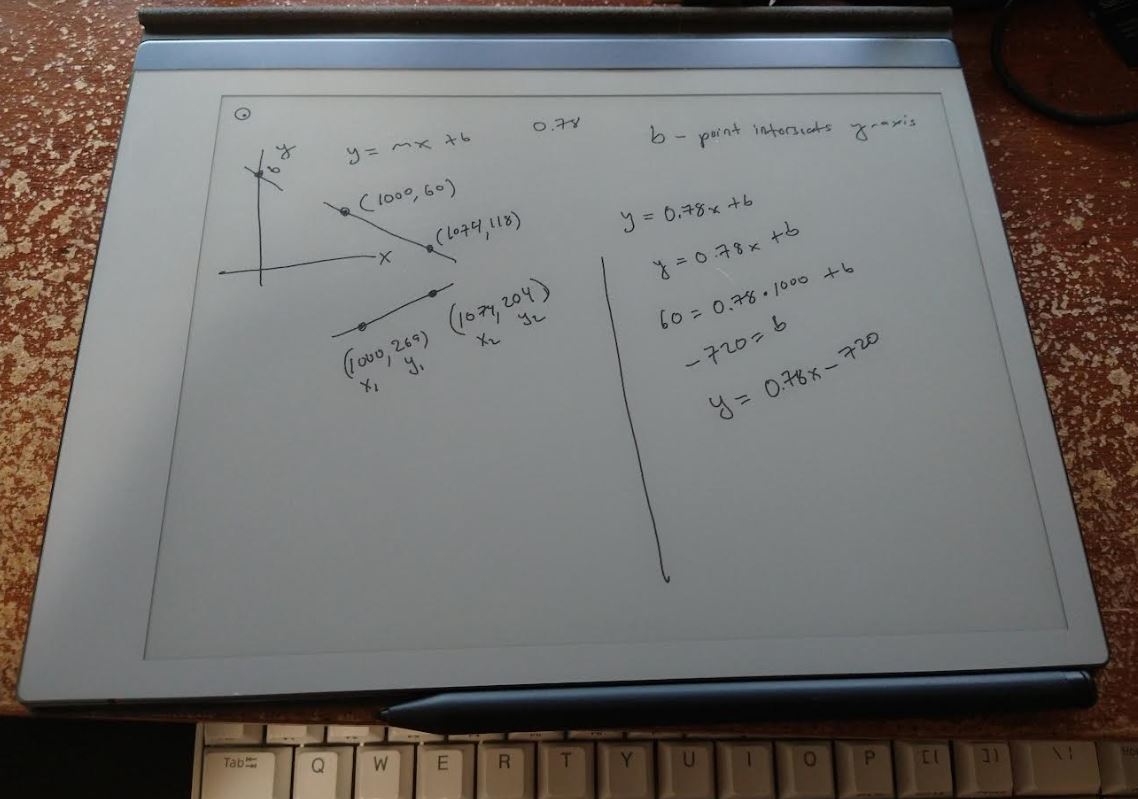 y = mx + b
0.78
b - point intersects y-axis
y
b
x
(1000, 60)
(1074, 118)
(1074, 204)
x₂ y₂
(1000, 269)
x₁ y₁
y = 0.78x + b
y = 0.78x + b
60 = 0.78 • 1000 + b
- 720 = b
y = 0.78x - 720
Tab
Q W E R T Y U I O P [{ ]} \|